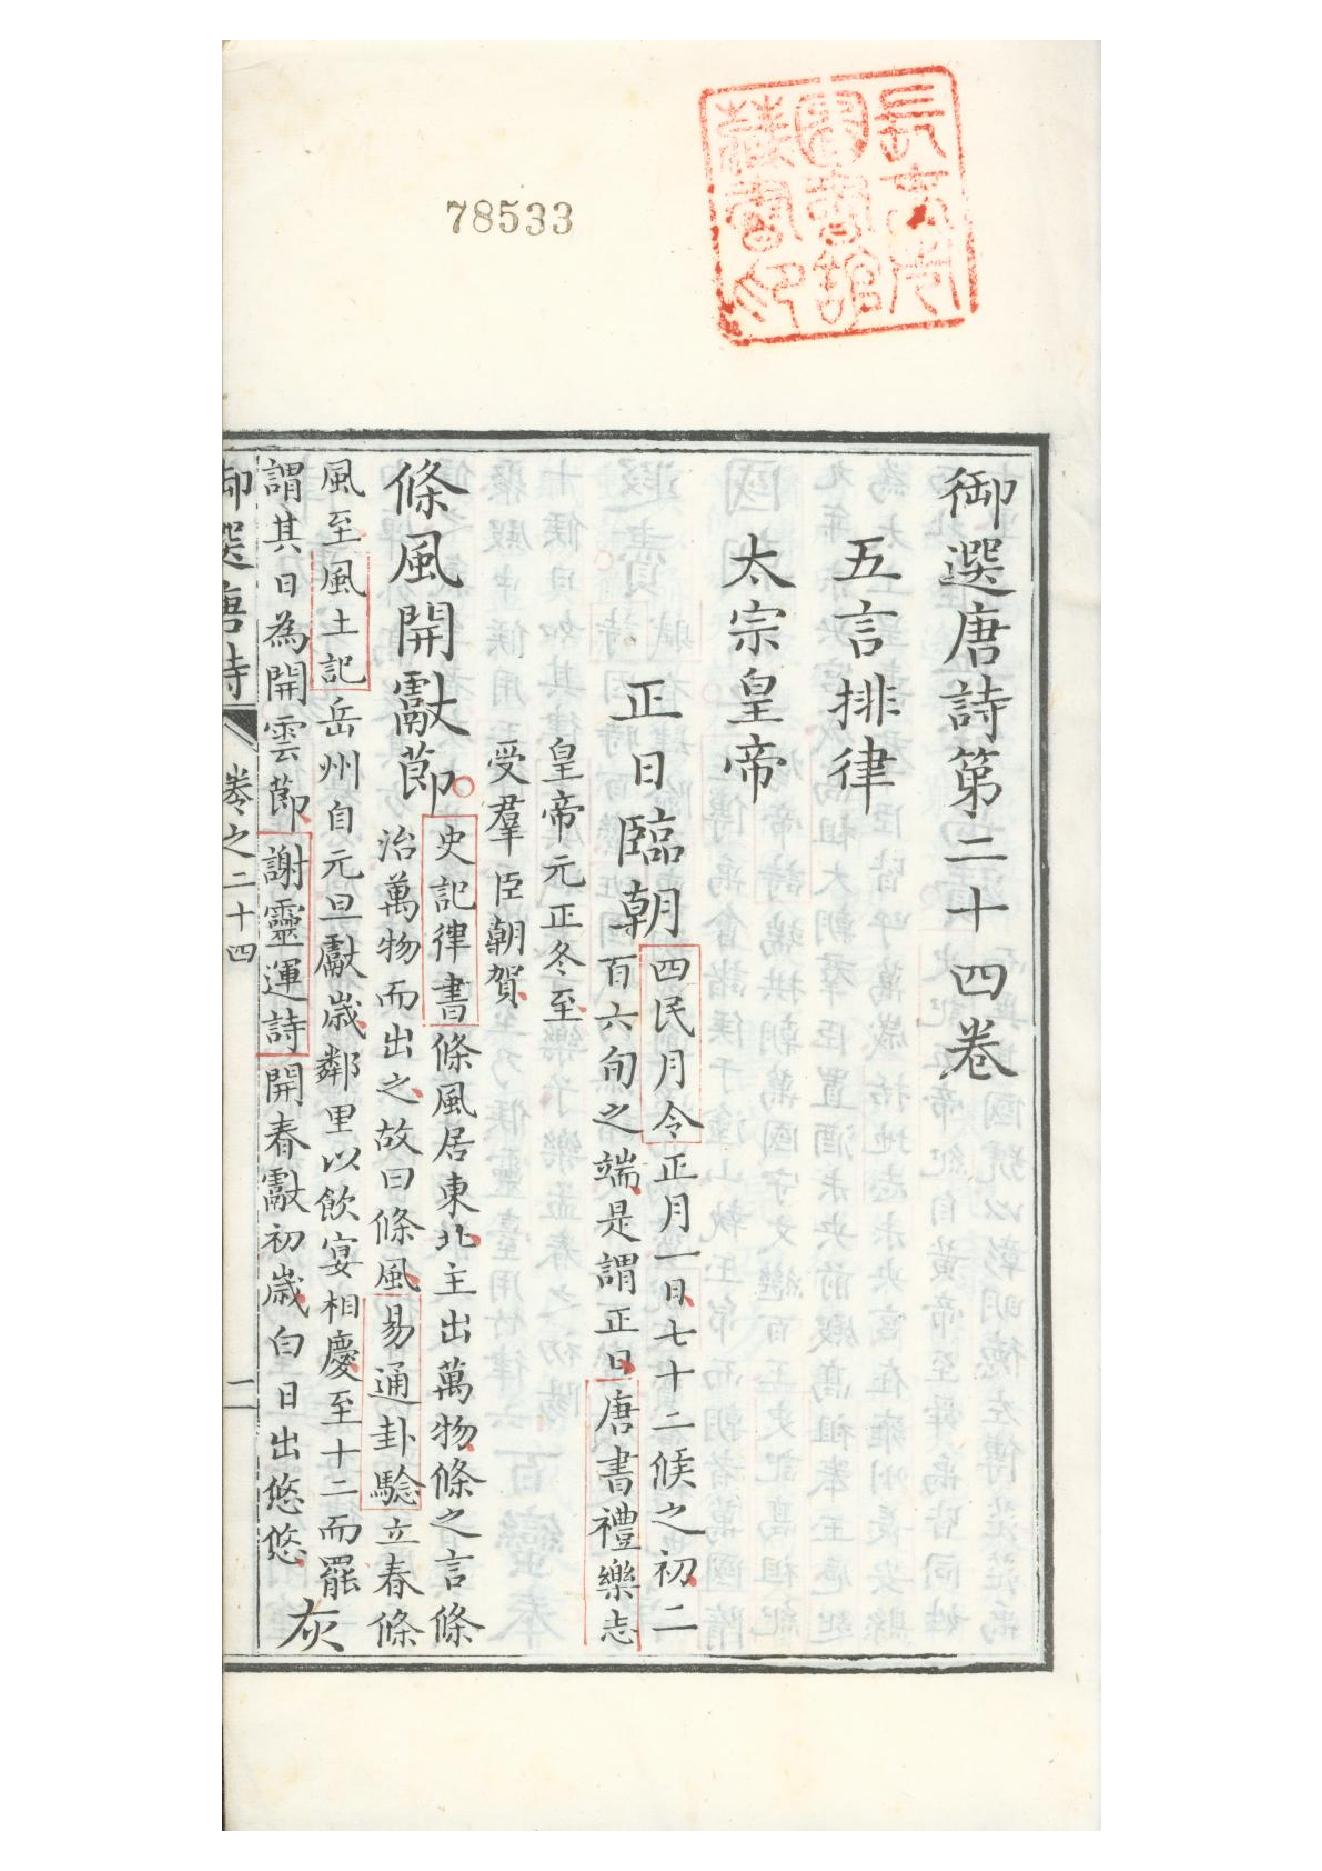 78533
御選唐詩第二十四卷
五言排律
太宗皇帝
正日臨朝 四民月令正月一日七十二候之初二
百六旬之端是謂正日唐書禮樂志
皇帝元正冬至
受羣臣朝賀
條風開獻節 史記律書條風居東北主出萬物條之言條
治萬物而出之故曰條風易通卦驗立春條
風至風土記岳州自元旦獻歲鄰里以飲宴相慶至十二而罷
謂其日為開雲節謝靈運詩開春獻初歲白日出悠悠 灰
御選唐詩 卷之二十四 一